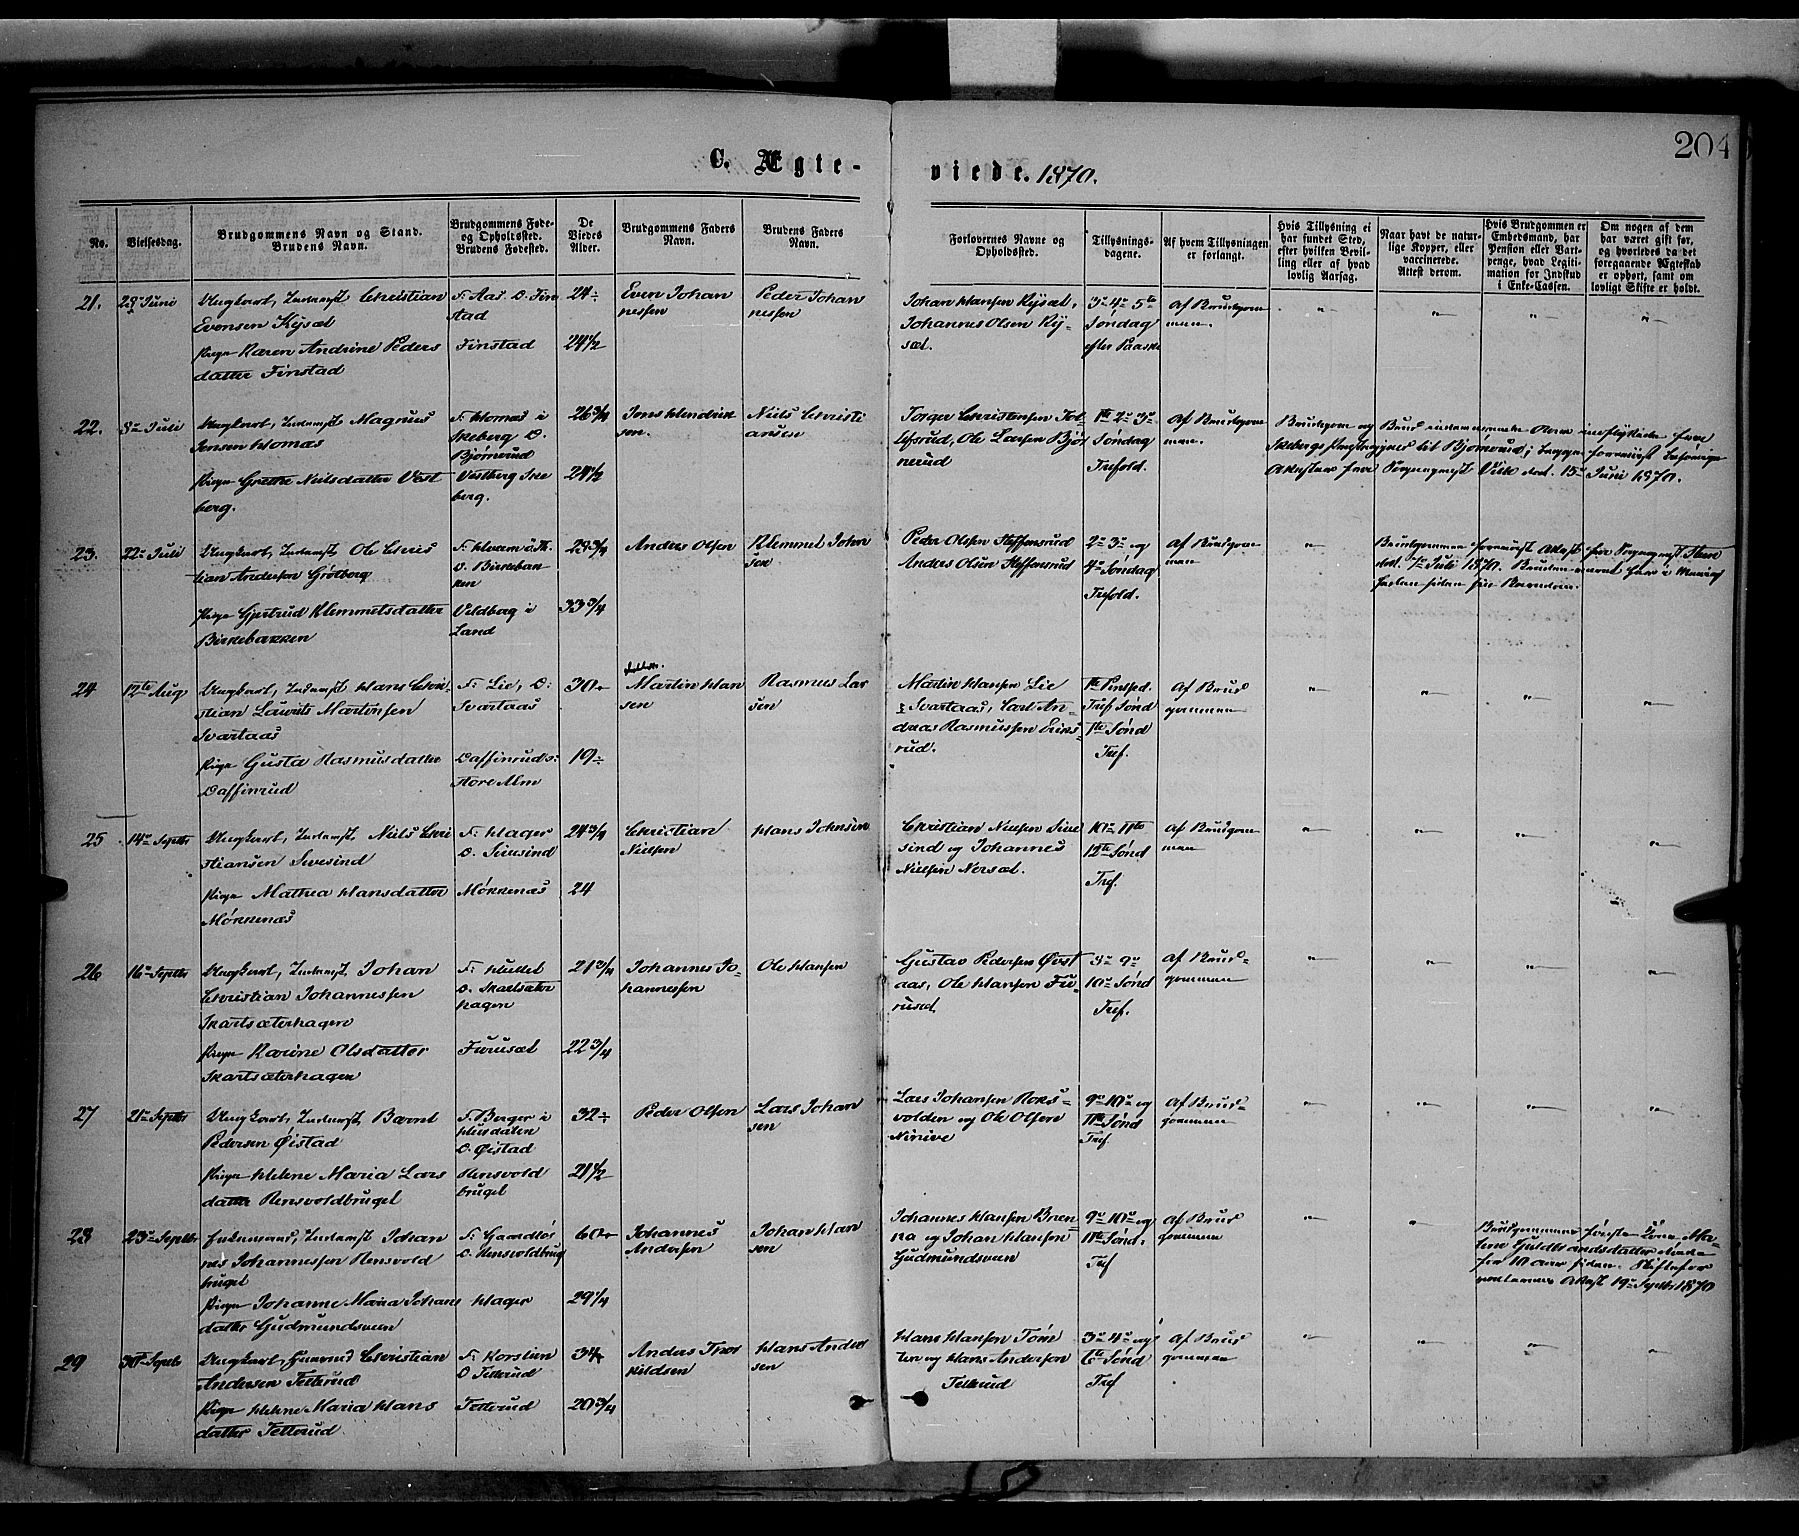 204
C. Ægte-
viede. 1870.
No.
Vielsesdag.
Brudgommens Navn og Stand.
Brudens Navn.
Brudgommens Føde-
og Opholdssted.
Brudens Fødested.
De
Viedes
Alder.
Brudgommens Faders
Navn.
Brudens Faders
Navn.
Forlovernes Navne og
Opholdssted.
Tillysnings-
dagene.
Af hvem Tillysningen
er forlangt.
Hvis Tillysning ei
har fundet Sted,
efter hvilken Bevil-
ling eller af hvad
lovlig Aarsag.
Naar havt de natur-
lige Kopper, eller
vaccinerede.
Attest derom.
Hvis Brudgommen er
Embedsmand, har
Pension eller Vart-
penge, hvad Legiti-
mation for Indskud
i Enke-Cassen.
Om nogen af dem
har været gift før,
og hvorledes da det
foregaaende Ægteskab
er ophørt, samt om
lovligt Skifte er holdt.
21.
28 Juni
Ungkarl, Indernst Christian
Evensen Kysæt
Pige Karen Andrine Peders
datter Finstad
F. Aas O. Fin
stad
Finstad
24
24 1/2
Even Johan
nessen
Peder Johan
nessen
Johan Hansen Kysæt,
Johannes Olsen Ky-
sæt.
3die 4de 5te
Søndag
efter Paaske
Af Brudgom
men.
22.
8de Juli
Ungkarl, Inderst Magnus
Jensen Homas
Pige Grethe Nielsdatter Vest
berg.
F. Homas i
Skeberg O.
Bjørnerud
Vestberg Ske
berg.
26 3/4
24 1/2
Jens Hendrik
sen.
Niels Christi
ansen
Torger Christensen Tol
lefsrud, Ole Larsen Bjør
nerud
1ste 2den 3die
Søndag
Trefold.
Af Brudgom
men.
Brudgom og Brud
Skebergs Præstegjeld til Bjørnerud; begge foreviist
Attester fra Sognepræst Viik dat. 15de Juni 1870.
23.
22de Juli
Ungkarl, Inderst Ole Chris
tian Andersen Gjøtberg
Pige Gjertrud Klemmetsdatter
Birkebakken
O. Birkebak
ken
Veldberg i
Land
33 3/4
Anders Olsen
Klemmet Johan
sen
Peder Olsen Steffensrud
Anders Olsen Steffensrud
2den 3die og
4de Søndag
Trefold.
Af Brudgom
men
dat. 1ste Juli 1870.
24
12te Aug
Ungkarl, Inderst Hans Chri
stian Laurits Martinsen
Svartaas
Pige Gusta Rasmusdatter
Daffinrud
F. Lie, O:
Svartaas
Daffinrud o:
store Alm
30
19
Martin Han
sen
Rasmus Lar
sen
Martin Hansen Lie
Svartaas, Carl An-
dreas Rasmussen Eriks-
rud.
1ste Pinsed.
Tref Sønd
1ste Sønd
Tref.
Af Brud
gommen
25
14de Septbr
Ungkarl, Inderst, Niels Chri
stiansen Sivesind
Pige Mathea Hansdatter
Mørkenæs
F. Hager
O. Sivesind
Mørkenæs
24 3/4
24
Christian
Nielsen
Hans Johnsen
Christian Nielsen Sive
sind og Johannes
Nielsen Nersæt.
10de 11te
12te Sønd
Tref.
Af Brudgom
men
26
16de Septbr
Ungkarl, Inderst, Johan
Christian Johannessen
Skartsæterhagen
Pige Karine Olsdatter
Skartsæterhagen
hagen
Furusæt
21 3/4
22 3/4
Johannes Jo-
hannessen
Ole Hansen
Gustav Pedersen Øvst
aas, Ole Hansen Fu-
ruset
10de Sønd
Tref.
Af Brud-
gommen
27
21de Septbr
Ungkarl, Inderst, Bernt
Pedersen Øistad
Pige Helene Maria Lars
datter Rensvoldbruget
F. Berger i
Husdalen
O. Øistad
Rensvold
bruget
32
21 1/2
Peder Olsen
Lars Johan
sen
Lars Johansen Roks-
volden og Ole Olsen
Ninive
9de 10de og
11te Sønd
Tref.
Af Brud-
gommen
28
23de Septbr
Enkemand, Inderst Johan
nes Johannessen Rensvold
bruget
Pige Johanne Maria Johans
datter Gudmundsveen
O. Rensvoldbrug
Hager
60
29 1/4
Johannes
Andersen
Johan Han
sen
Johannes Hansen Bren-
na og Johan Hansen
Gudmundsveen
9de 10de og
11te Sønd.
Tref
Af Brud
gommen
Brudgommens første Kone
Guldbrandsdatter døde
for 10 aar siden.
Attest 19de Septbr 1870
29
30te Septbr
Ungkarl, Christian
Andersen Tellerud
Pige Helene Maria Hans
datter Tellerud
F. Korslien
O Tellerud
Tellerud
34
20 3/4
Anders Thor
kildsen
Hans Ander
sen
Hans Hansen
og Hans Andersen
Tellerud
3die 4de og
6te Sønd
Tref
Af Brud
gommen